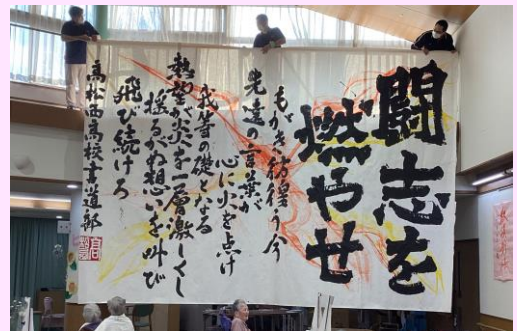 闘志を
燃やせ
もがき彷徨う今
先達の言葉が
心に火を点け
我等の礎となる
熱望が炎を一層激しくし
揺るがぬ想いを叫び
飛び続けろ
高松西高校書道部